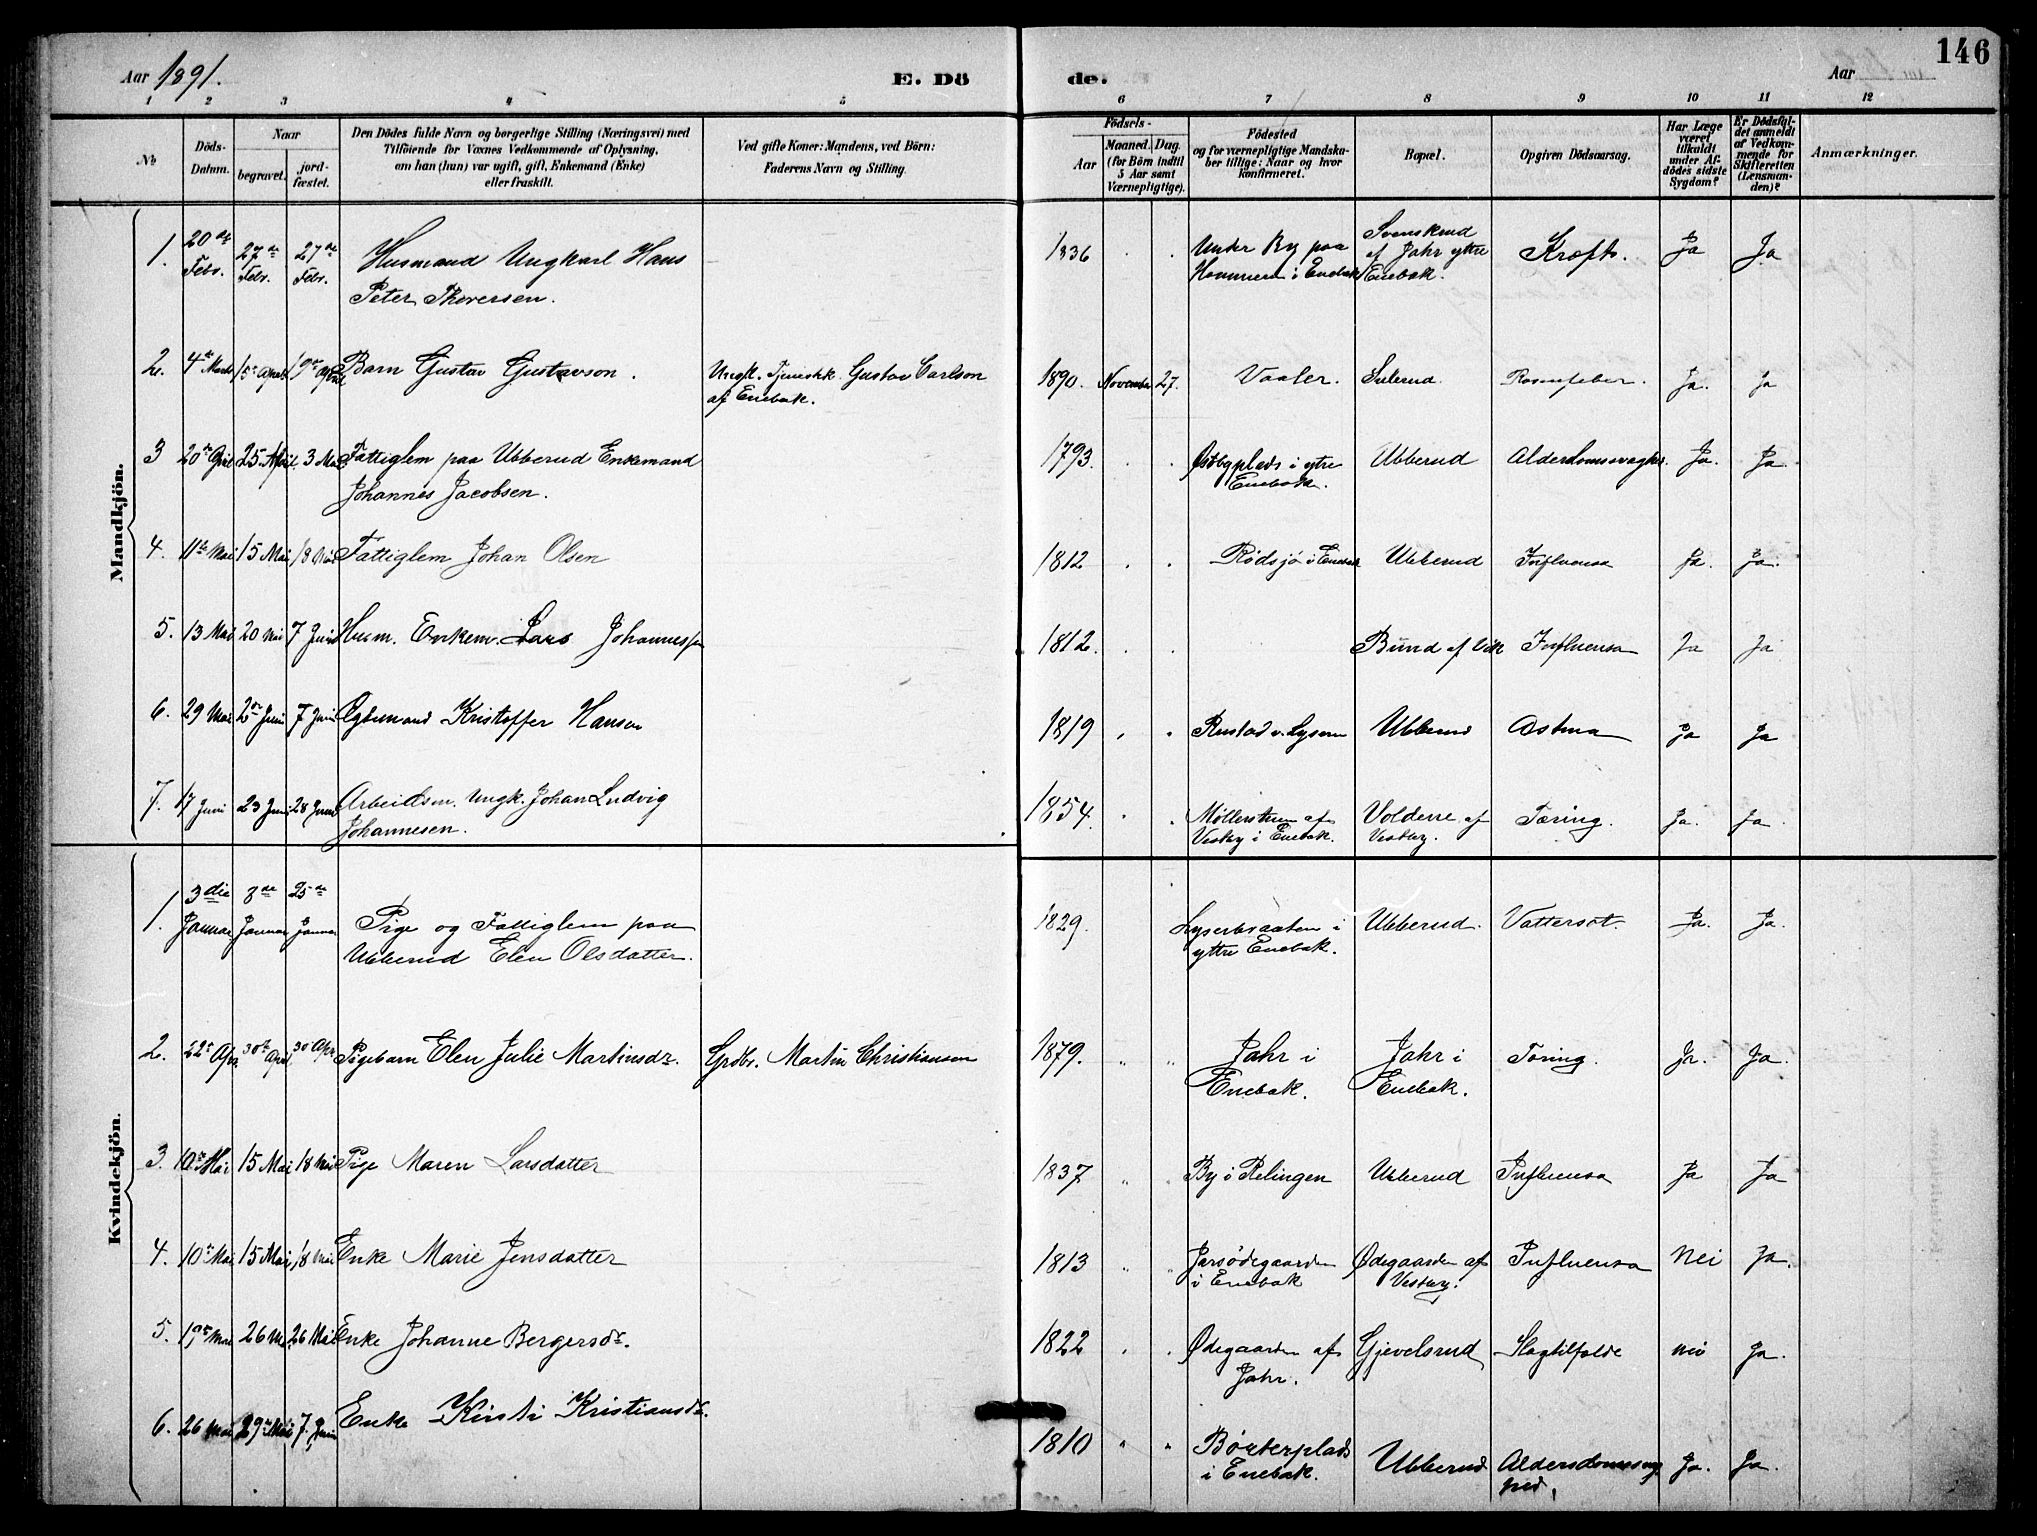 146
Aar 1891.
E. Dö
de.
Aar
1 2 3 4 5 6 7 8 9 10 11 12
No
Döds-
Datum.
Naar
begravet.
jord-
fæstet.
Den Dödes fulde Navn og borgerlige Stilling (Næringsvei) med
Tilföiende for Voxnes Vedkommende af Oplysning,
om han (hun) var ugift, gift, Enkemand (Enke)
eller fraskilt.
Ved gifte Koner: Mandens, ved Börn:
Faderens Navn og Stilling.
Födsels-
Aar
Maaned. Dag.
(for Börn indtil
5 Aar samt
Værnepligtige).
Födested
og for værnepligtige Mandska-
ber tillige: Naar og hvor
konfirmeret.
Bopæl.
Opgiven Dödsaarsag.
Har Læge
været
tilkaldt
under Af-
dödes sidste
Sygdom?
Er Dödsfal-
det anmeldt
af Vedkom-
mende for
Skifteretten
(Lensman-
den)?
Anmærkninger.
Mandkjön.
1. 20de Febr. 27de Febr. 27de Febr. Husmand Ungkarl Hans
Peter Thoresen.
1836 Under By paa
Hammeren i Enebak
Svenskrud
af Jahr ytre
Enebak.
Kræft. Ja Ja
2. 4de Marts 15de April 19de April Barn Gustav Gustavson.
Ungk. Tjenestk. Gustav Carlson
af Enebak.
1890. November 27. Vaaler. Sulerud. Rosenfeber. Ja. Ja
3 20de April 25 April 3 Mai Fattiglem paa Ubberud Enkemand
Johannes Jacobsen.
1793. Østbyplads i ytre
Enebak.
Ubberud Alderdomssvaghed. Ja. Ja
4. 11te Mai 15 Mai 18 Mai Fattiglem Johan Olsen
1812 Rødsjø i Enebak Ubberud Influensa Ja. Ja.
5. 13 Mai 20 Mai 7 Juni Husm. Enkem. Lars Johannessen
1812. Bund af Vik Influensa Ja Ja
6. 29 Mai 2den Juni 7 Juni Ægtemand Kristoffer Hansen
1819 Rustad v. Lysern Ubberud Astma Ja Ja
7. 17 Juni 23 Juni 28 Juni Arbeidsm. Ungk. Johan Ludvig
Johannesen.
1854. Møllerstuen af
Vestby i Enebak.
Volderre af
Vestby.
Tæring. Ja. Ja.
Kvindekjön.
1. 3die Januar 8de Januar 25de Januar Pige og Fattiglem paa
Ubberud Elen Olsdatter.
1829. Lyserbraaten i
ytre Enebak.
Ubberud. Vattersot. Ja. Ja.
2. 22de Apr. 30te April 30 Apr. Pigebarn Elen Julie Martinsdr.
Grdbr. Martin Christiansen
1879. Jahr i
Enebak.
Jahr i
Enebak.
Tæring. Ja. Ja.
3. 10de Mai 15 Mai 18 Mai Pige Maren Larsdatter
1837 By i Relingen Ubberud Influensa Ja Ja
4. 10de Mai 15 Mai 18 Mai Enke Marie Jensdatter
1813 Jarsødegaarden
i Enebak
Ødegaarden af
Vestby.
Influensa Nei Ja.
5. 19de Mai 26 Mai 26 Mai Enke Johanne Bergersdr.
1822 Ødegaarden af
Jahr.
Gjevelsrud Slagtilfælde nei Ja.
6. 26 Mai 29de Mai 7. Juni Enke Kirsti Kristiansdr.
1810 Børterplads
i Enebak.
Ubberud Alderdomssvag
hed. Ja. Ja.